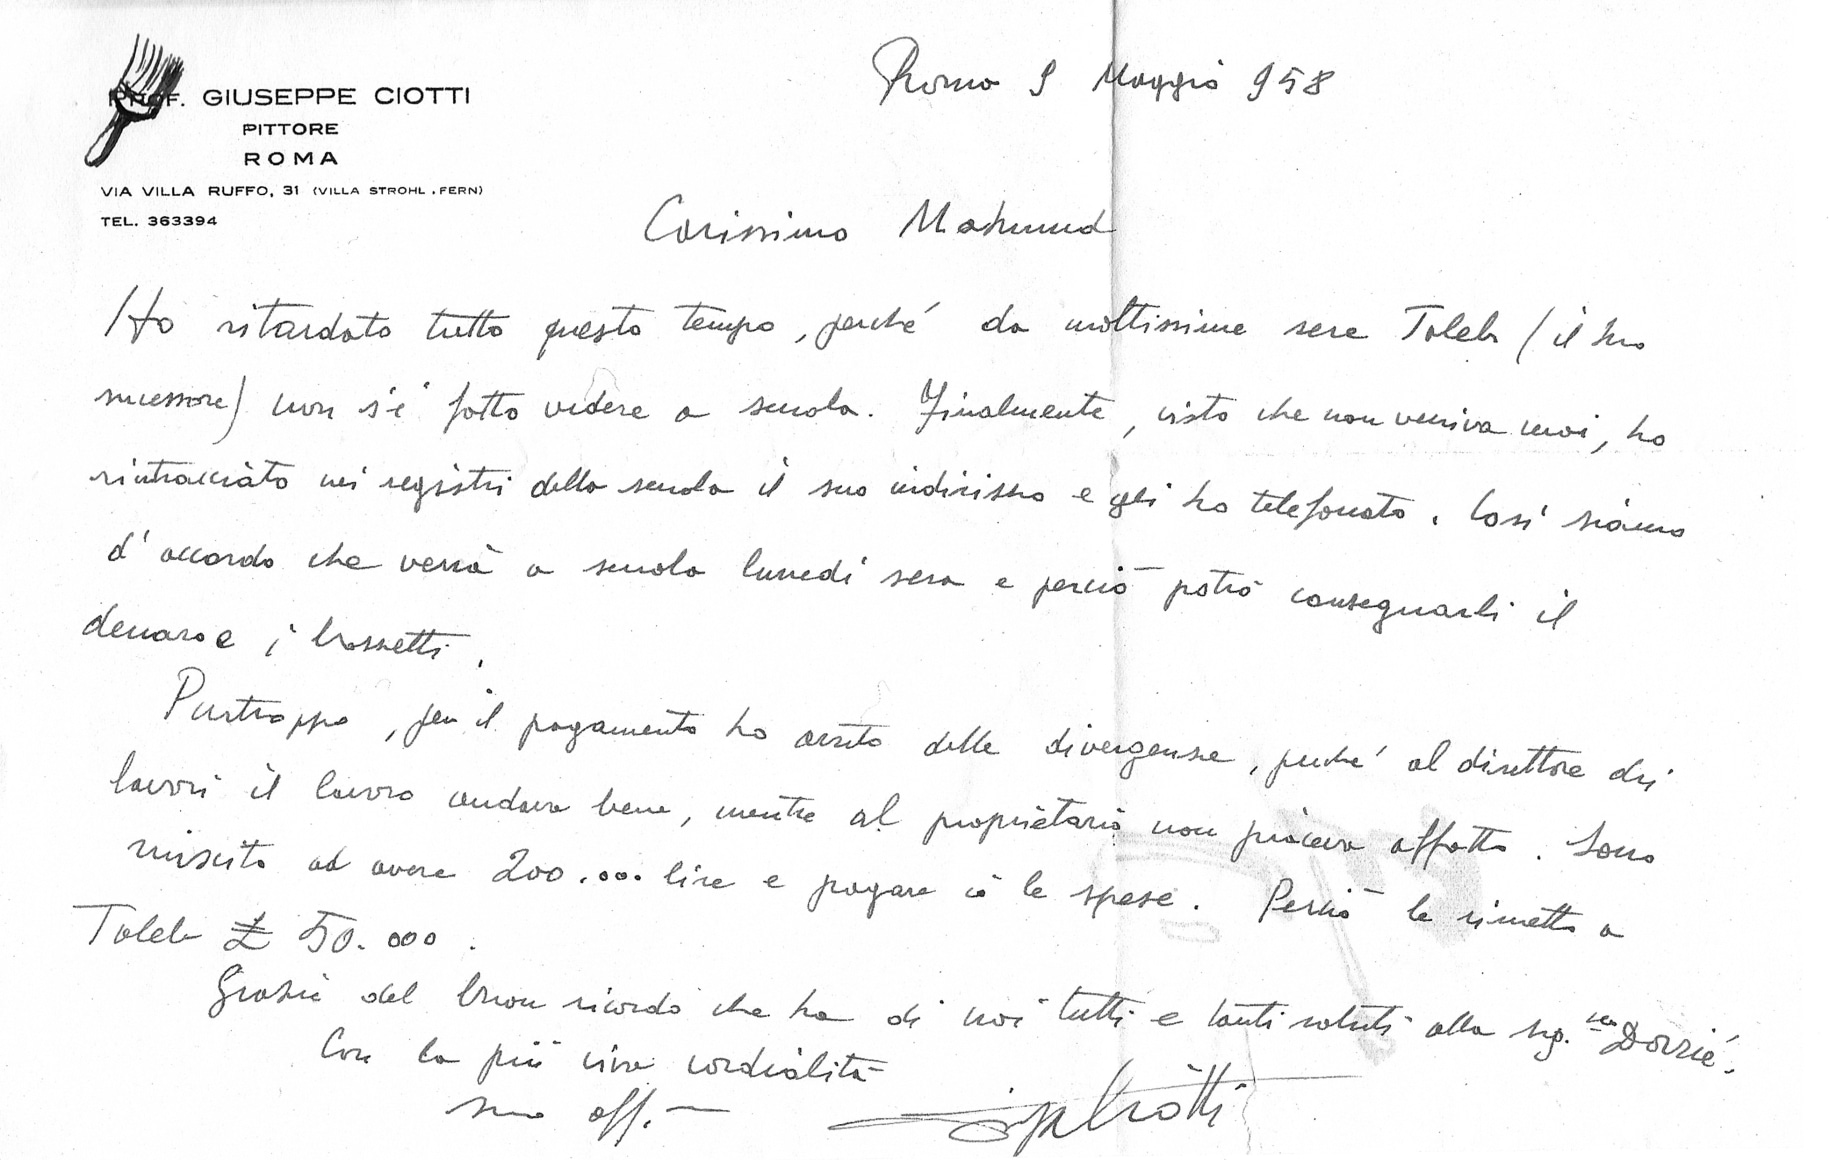 PROF. GIUSEPPE CIOTTI
PITTORE
ROMA
VIA VILLA RUFFO, 31 (VILLA STROHL . FERN)
TEL. 363394
Roma 9 Maggio 958
Carissimo Mahmud
Ho ritardato tutto questo tempo, perché da moltissime sere Taleb (il suo
successore) non s'é fatto vedere a scuola. Finalmente, visto che non veniva mai, ho
rintracciato nei registri della scuola il suo indirizzo e gli ho telefonato. Così siamo
d'accordo che verrà a scuola lunedì sera e perciò potrò consegnarli il
denaro e i bozzetti.
Purtroppo, per il pagamento ho avuto delle divergenze, perché al direttore dei
lavori il lavoro andava bene, mentre al proprietario non piaceva affatto. Sono
riuscito ad avere 200.000 lire e pagare io le spese. Perciò le rimetto a
Taleb £ 50.000.
Grazie del buon ricordo che ha di noi tutti e tanti saluti alla sig.na Dorrié.
Con la più viva cordialità
suo aff. —
Gius Ciotti